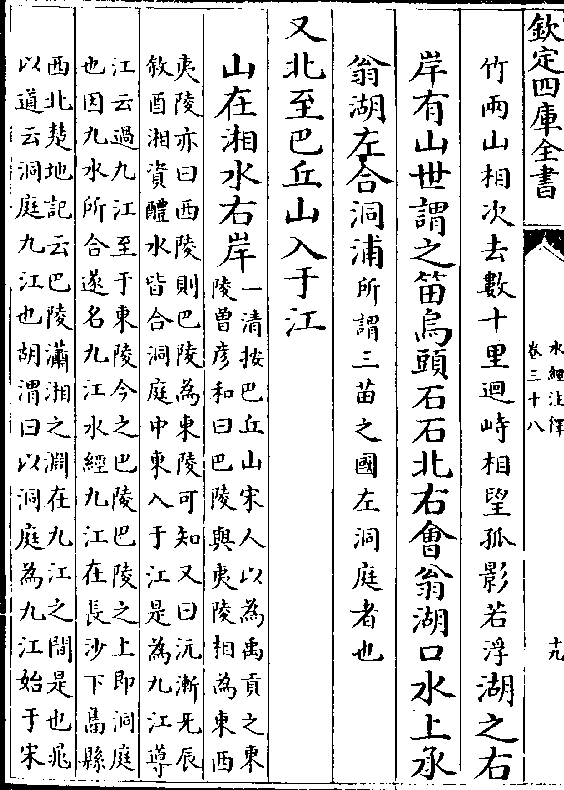 欽定四庫全書
水經注釋
卷三十八
十九
竹兩山相次去數十里迴峙相望孤影若浮湖之右
岸有山世謂之笛烏頭石石北右會翁湖口水上承
翁湖左合洞浦所謂三苗之國左洞庭者也
又北至巴丘山入于江
山在湘水右岸
一清按巴丘山宋人以為禹貢之東
陵曽彦和曰巴陵與夷陵相為東西
夷陵亦曰西陵則巴陵為東陵可知又曰沅漸旡辰
敘酉湘資醴水皆合洞庭中東入于江是為九江導
江云過九江至于東陵今之巴陵巴陵之上即洞庭
也因九水所合遂名九江水經九江在長沙下雋縣
西北楚地記云巴陵瀟湘之淵在九江之間是也晁
以道云洞庭九江也胡渭曰以洞庭為九江始于宋